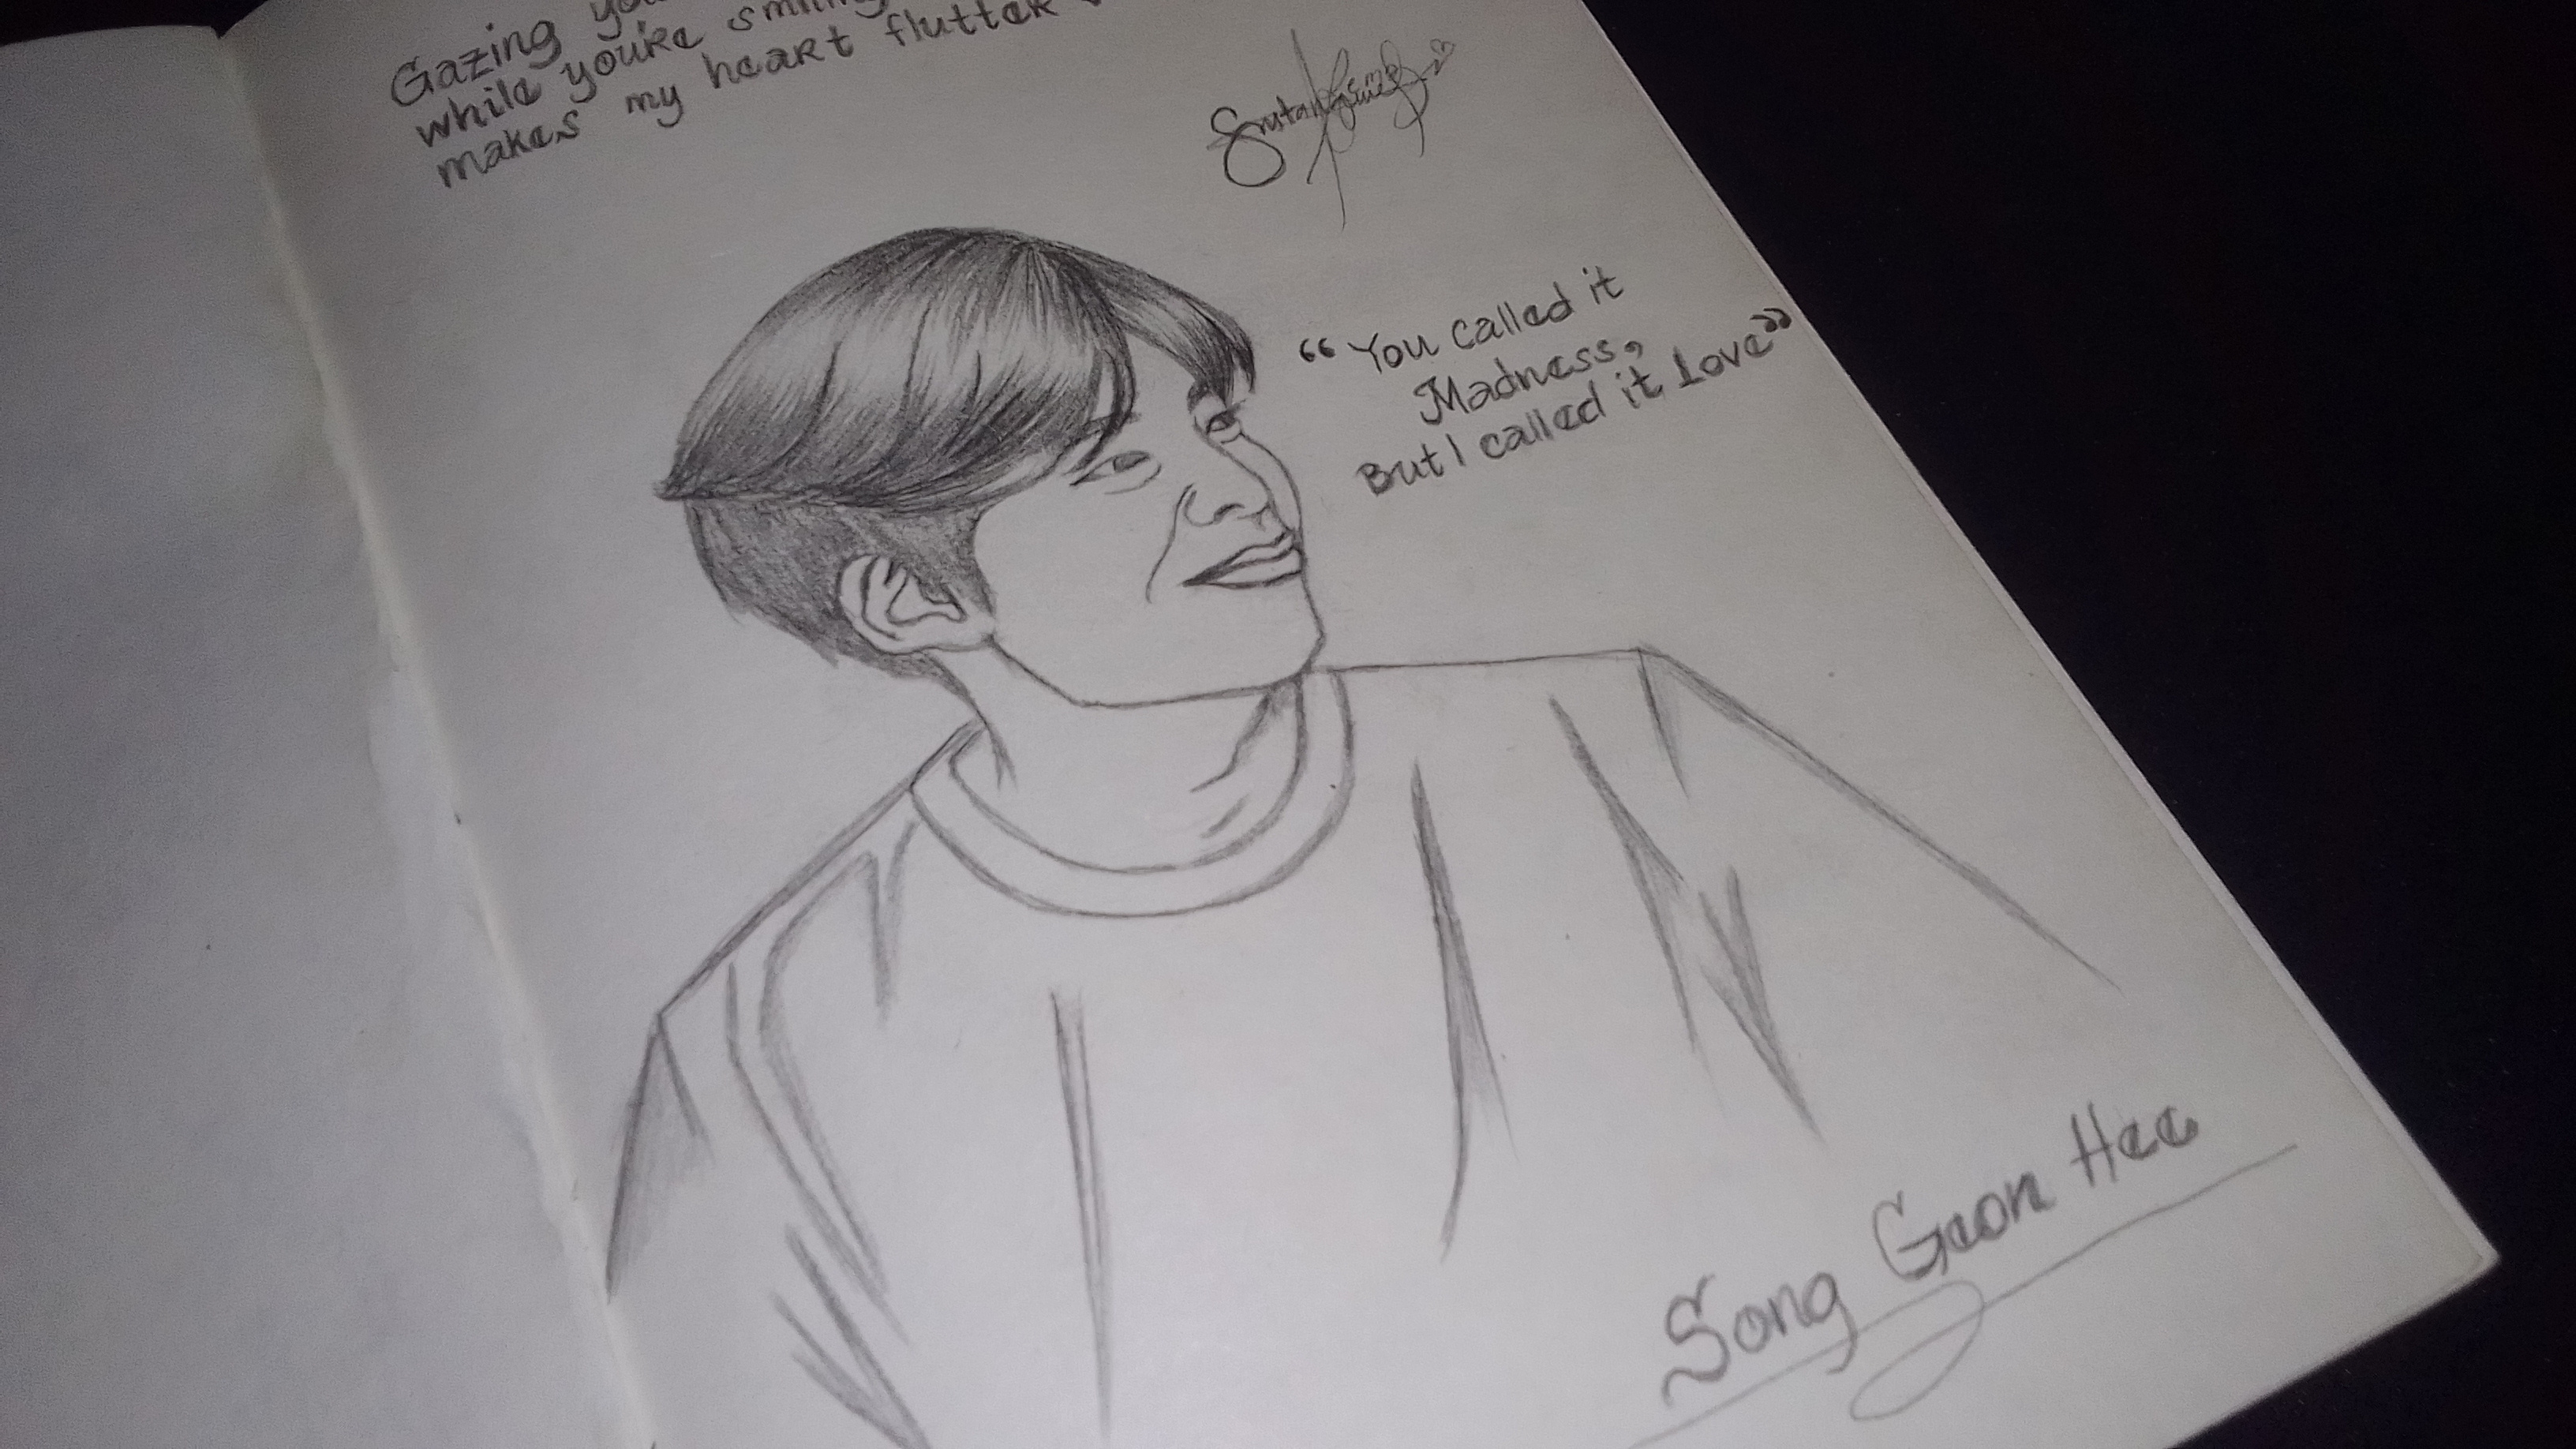 Gazing
while you're
makes my heart flutter
"You called it
Madness,
But I called it Love"
Song Geon Hee